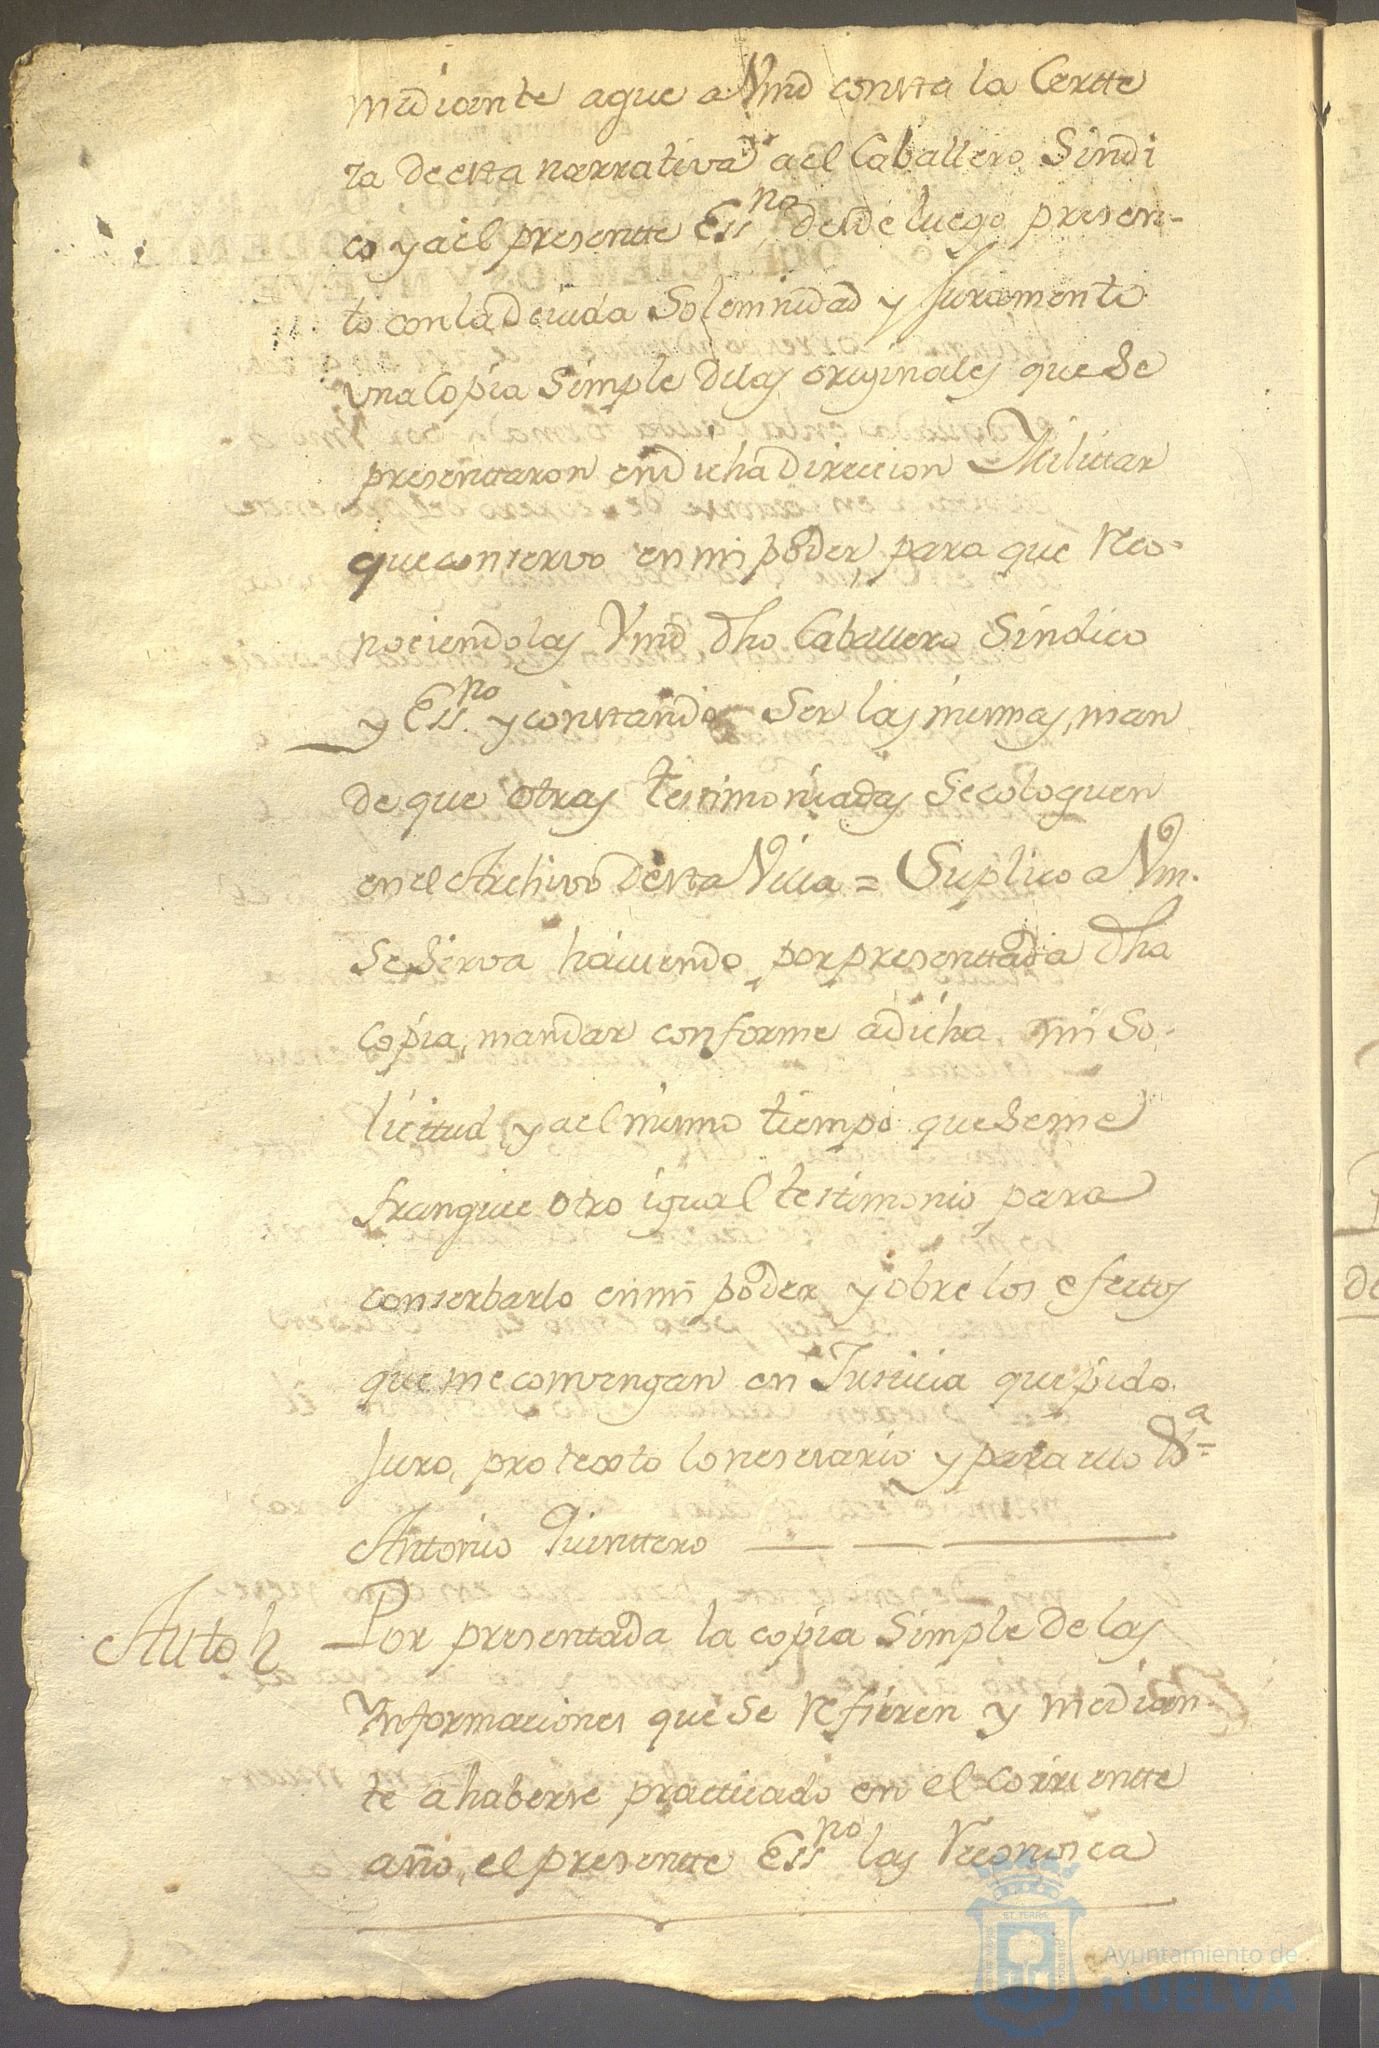 mediante aque a Vmd consta la Certte
za de esta narrativa a el Caballero Sindi
co y a el presentte Essno desde luego presen-
to con la Deuida Solemnidad y Juramento
vna Copia Simple de las originales que Se
presenttaron en dicha Direccion Milittar
que conservo en mi poder, para que Reco-
nociendolas Vmd dho Caballero Sindico
y Essno y constando Ser las mismas, man
de que otras testimoniadas Se cologuen
en el Archivo de esta Villa = Suplico a Vm.
Se Sirva haviendo por presenttada dha
copia, mandar conforme a dicha mi So-
licittud y a el mismo tiempo que Seme
franquee otro igual testimonio para
conserbarlo en mi poder y obre los efectos
que me convengan en Justicia que pido
Juro, protexto lo nesesario y para ello Va=
Antonio Quinttero
Auto h Por presentada la copia Simple de las
Ynformaciones que Se Refieren y median-
te a haberse practicado en el corriencte
año, el presentte Essno las Reconosca
Ayuntamiento de
HUELVA